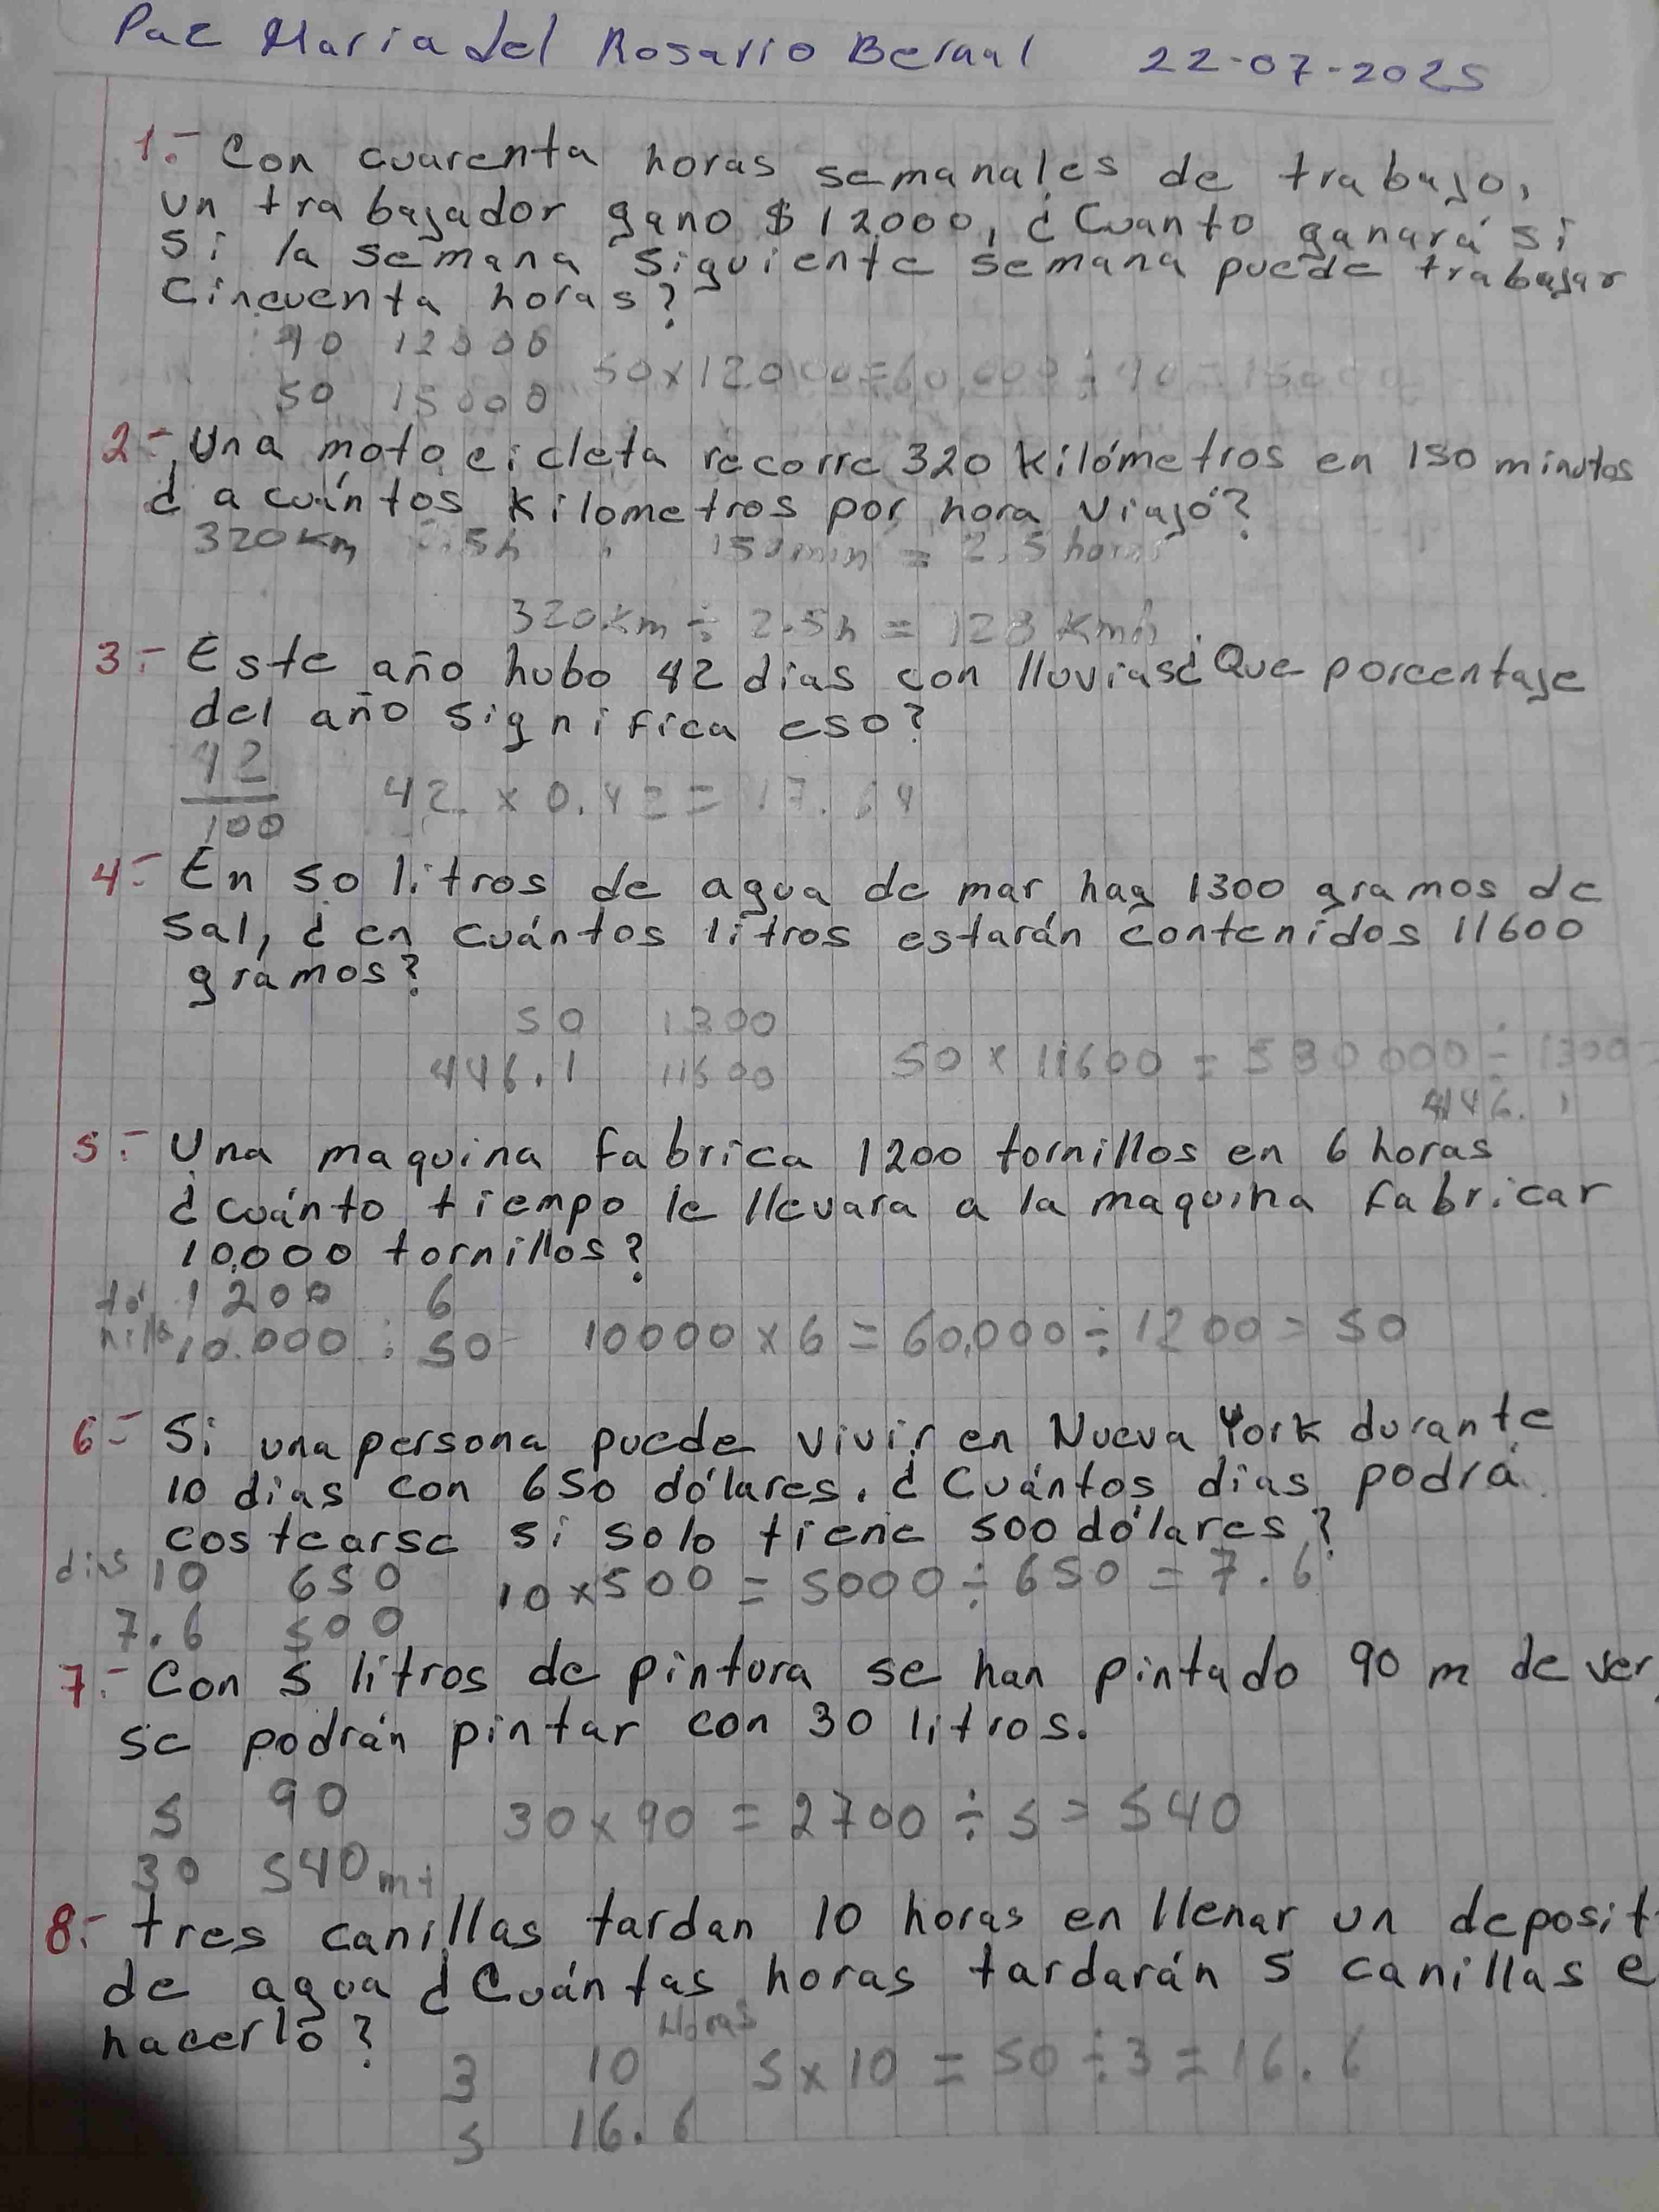 Paz Maria del Rosario Bernal 22-07-2025
1.- Con cuarenta horas semanales de trabajo,
un trabajador gano $12000, ¿Cuanto ganará si
si la semana siguiente semana puede trabajar
cincuenta horas?
40 12000
50 15000
50x12000=60,000÷40=15000
2- Una motocicleta recorre 320 kilómetros en 150 minutos
¿a cuántos kilometros por hora viajó?
320km 2.5h 150min = 2.5 horas
320km ÷ 2.5h = 128 Kmh
3- Este año hubo 42 dias con lluvias¿Que porcentaje
del año significa eso?
42
100
42 x 0.42 = 17.64
4- En 50 litros de agua de mar hay 1300 gramos de
sal, ¿en cuántos litros estarán contenidos 11600
gramos?
50 1300
446.1 11600
50 x 11600 = 580 000 ÷ 1300
446.1
5- Una maquina fabrica 1200 tornillos en 6 horas
¿cuánto tiempo le llevara a la maquina fabricar
10,000 tornillos?
tor 1200 6
nillo 10.000 : 50
10000 x 6 = 60,000 ÷ 1200 = 50
6- Si una persona puede vivir en Nueva York durante
10 dias con 650 dólares. ¿Cuántos dias podrá
costearse si solo tiene 500 dólares?
dias 10 650
10x500 = 5000÷650 = 7.6
7.6 500
7.- Con 5 litros de pintura se han pintado 90 m de ver
se podrán pintar con 30 litros.
5 90
30x90 = 2700 ÷ 5 = 540
30 540 mt
8- tres canillas tardan 10 horas en llenar un deposit
de agua ¿Cuántas horas tardarán 5 canillas e
hacerlo?
Horas
3 10 5x10 = 50÷3 = 16.6
5 16.6